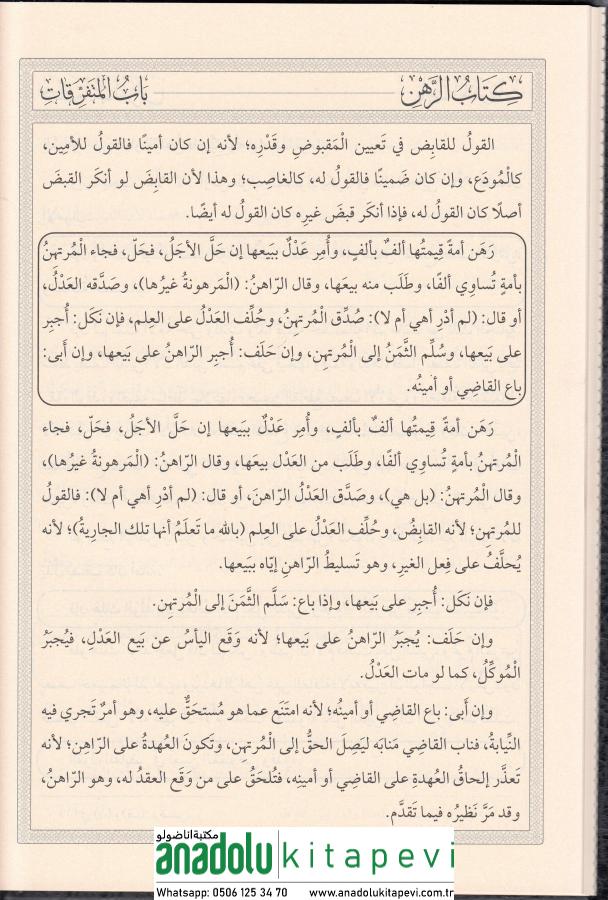 كِتَابُ الرَّهْنِ
بَابُ الْمُتَفَرِّقَاتِ
القولُ للقابِض في تَعيين الْمَقبوضِ وقَدْرِه؛ لأنه إن كان أمينًا فالقولُ للأمِين،
كالْمُودَع، وإن كان ضَمينًا فالقولُ له، كالغاصِب؛ وهذا لأن القابِضَ لو أنكَر القبضَ
أصلًا كان القولُ له، فإذا أنكَر قبضَ غيرِه كان القولُ له أيضًا.
رَهَن أمةً قِيمتُها ألفٌ بألفٍ، وأُمِر عَدْلٌ ببَيعها إن حَلَّ الأجَلُ، فحَلّ، فجاء الْمُرتهِنُ
بأمةٍ تُساوِي ألفًا، وطَلَب منه بيعَها، وقال الرّاهنُ: (الْمَرهونةُ غيرُها)، وصَدَّقه العَدْلُ،
أو قال: (لم أدْرِ أهي أم لا): صُدِّق الْمُرتهِنُ، وحُلِّف العَدْلُ على العِلم، فإن نَكَل: أُجبِر
على بَيعها، وسُلِّم الثَّمَنُ إلى الْمُرتهِن، وإن حَلَف: أُجبِر الرّاهنُ على بَيعها، وإن أبَى:
باع القاضِي أو أمينُه.
رَهَن أمةً قِيمتُها ألفٌ بألفٍ، وأُمِر عَدْلٌ ببَيعها إن حَلَّ الأجَلُ، فحَلّ، فجاء
الْمُرتهِنُ بأمةٍ تُساوِي ألفًا، وطَلَب من العَدْل بيعَها، وقال الرّاهنُ: (الْمَرهونةُ غيرُها)،
وقال الْمُرتهِنُ: (بل هي)، وصَدَّق العَدْلُ الرّاهنَ، أو قال: (لم أدْرِ أهي أم لا): فالقولُ
للمُرتهِن؛ لأنه القابِضُ، وحُلِّف العَدْلُ على العِلم (بالله ما تَعلَمُ أنها تلك الجارِيةُ)؛ لأنه
يُحلَّفُ على فِعل الغيرِ، وهو تَسليطُ الرّاهنِ إيّاه ببَيعها.
فإن نَكَل: أُجبِر على بَيعها، وإذا باع: سَلَّم الثَّمَنَ إلى الْمُرتهِن.
وإن حَلَف: يُجبَرُ الرّاهنُ على بَيعها؛ لأنه وَقَع اليأسُ عن بَيع العَدْلِ، فيُجبَرُ
الْمُوكِّلُ، كما لو مات العَدْلُ.
وإن أبَى: باع القاضِي أو أمينُه؛ لأنه امتَنَع عما هو مُستحَقٌّ عليه، وهو أمرٌ تَجري فيه
النِّيابةُ، فناب القاضِي مَنابَه ليَصِلَ الحقُّ إلى الْمُرتهِن، وتَكونَ العُهدةُ على الرّاهِن؛ لأنه
تَعذَّر إلحاقُ العُهدةِ على القاضِي أو أمينِه، فتُلحَقُ على من وَقَع العقدُ له، وهو الرّاهنُ،
وقد مَرَّ نَظيرُه فيما تَقدَّم.
مكتبة اناضولو
anadolu kitapevi
Whatsapp: 0506 125 34 70 www.anadolukitapevi.com.tr